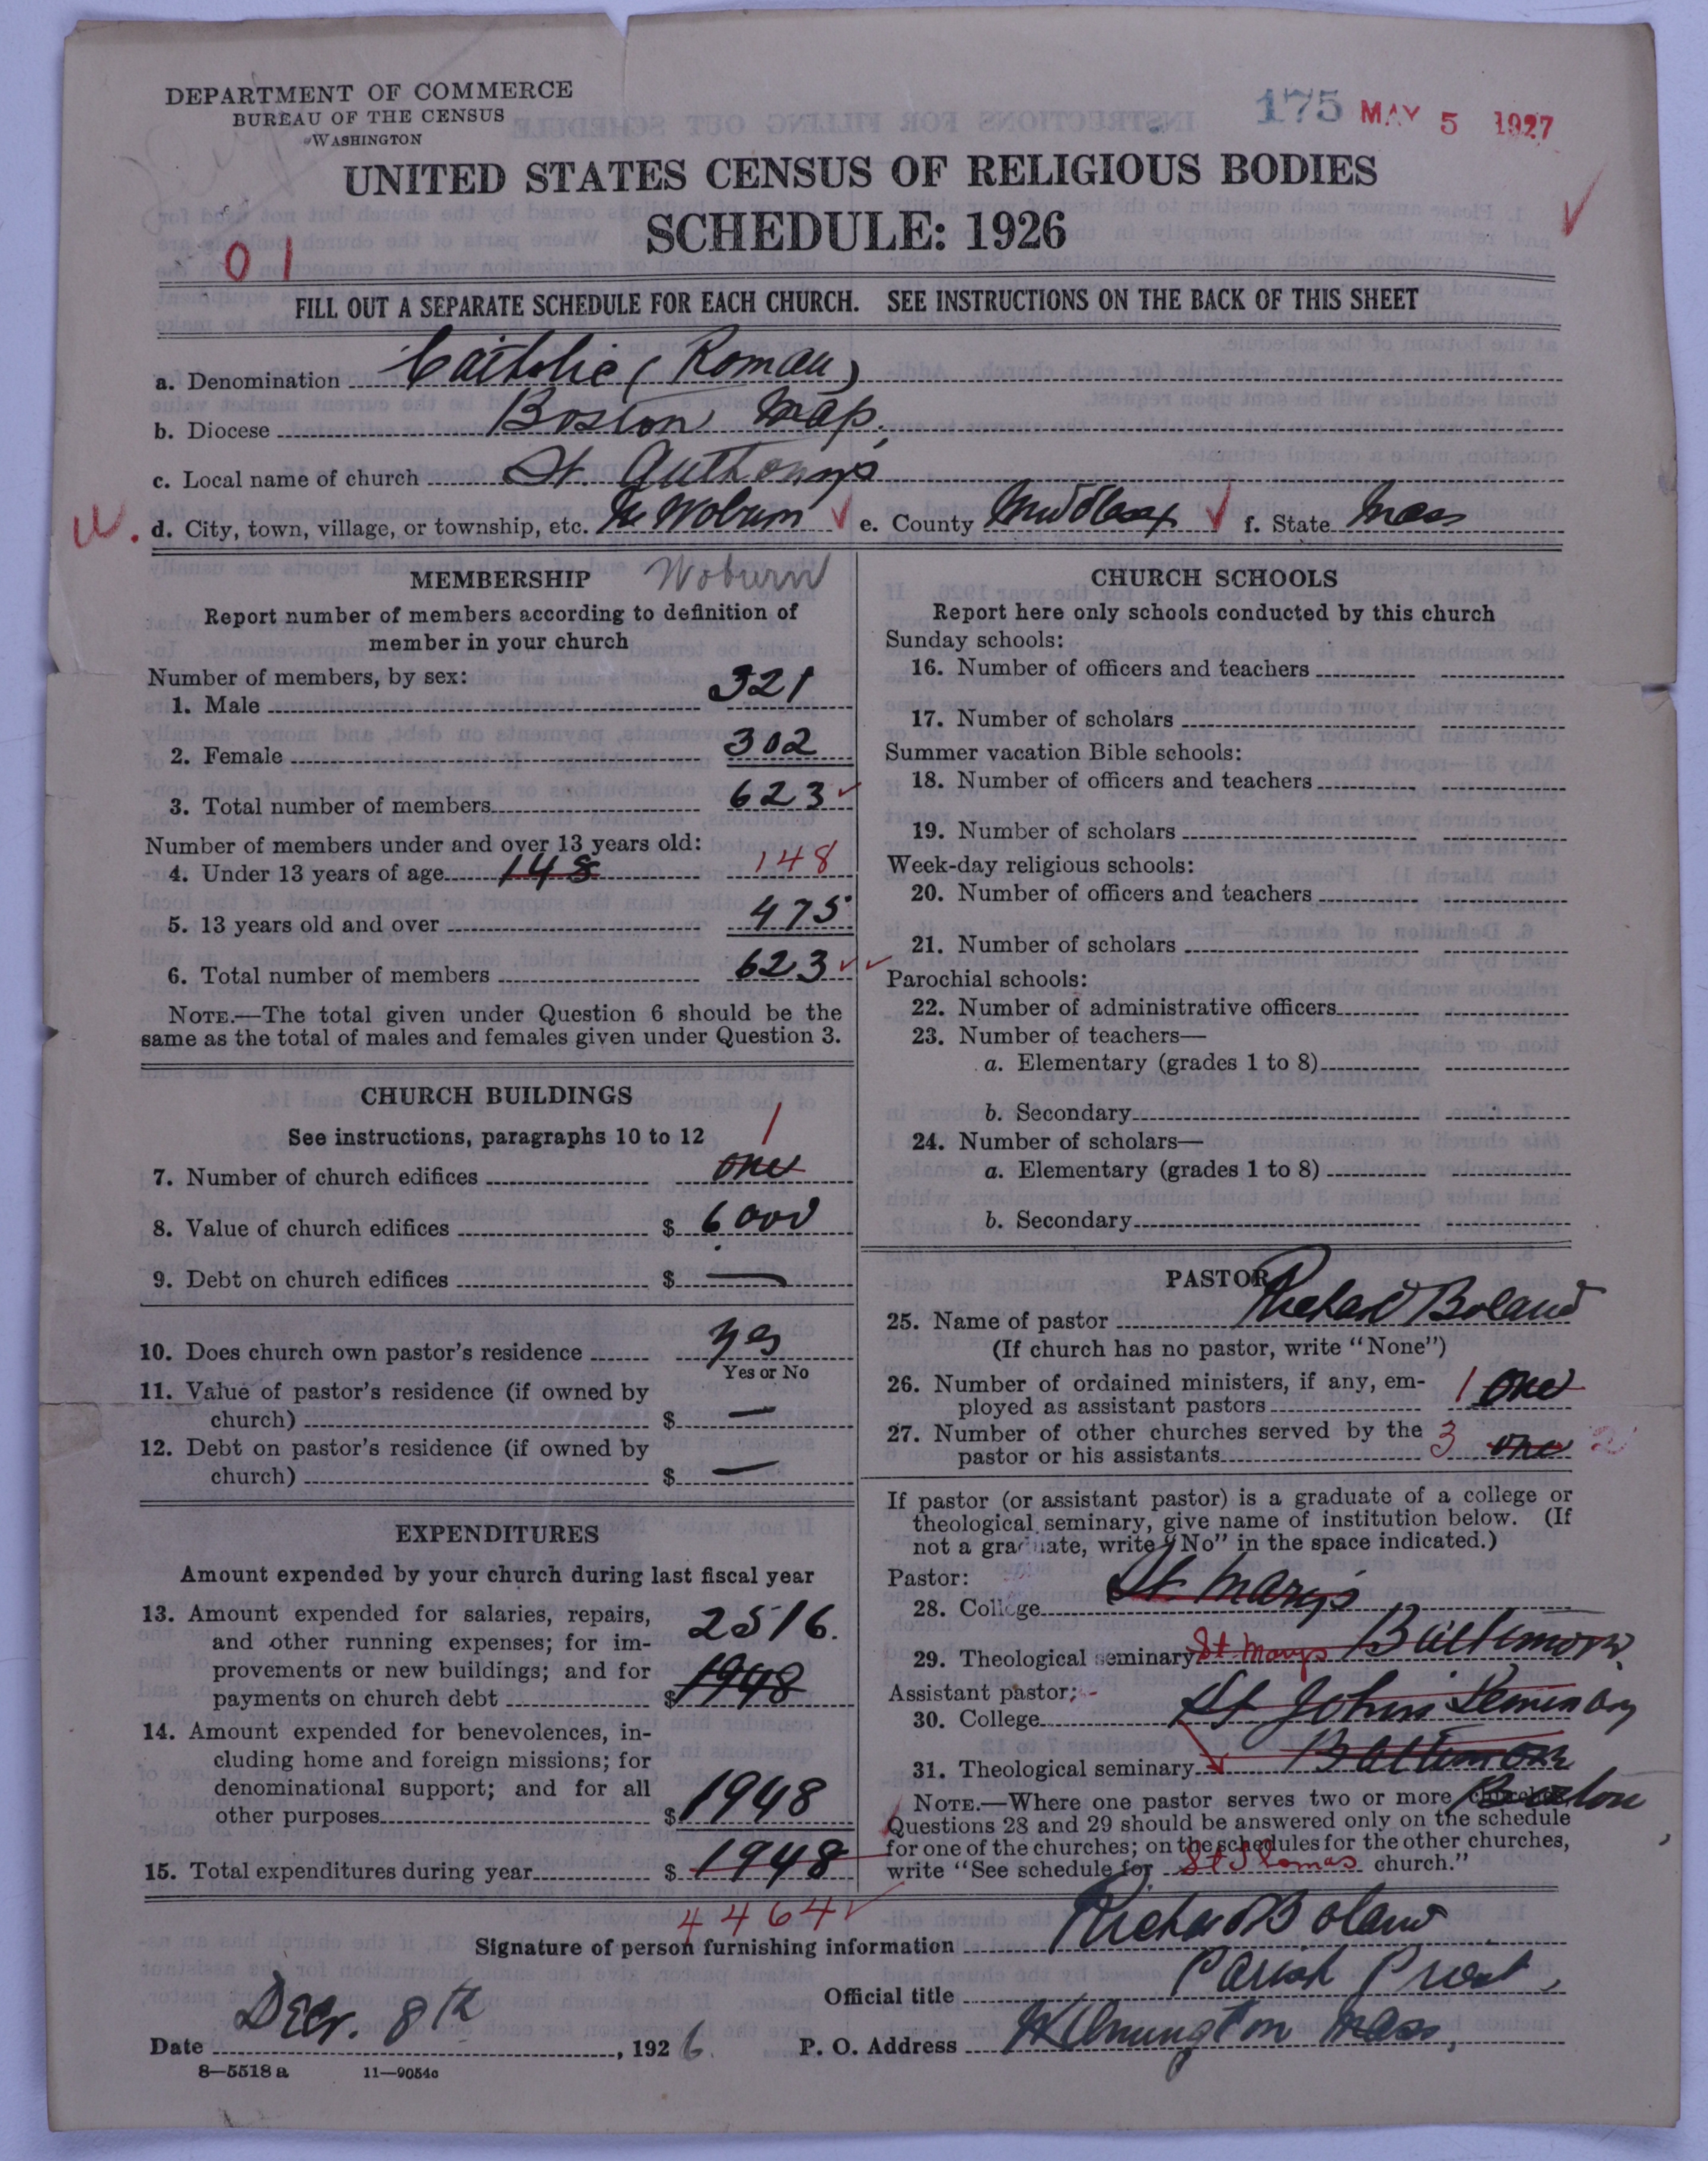 DEPARTMENT OF COMMERCE
BUREAU OF THE CENSUS
WASHINGTON
175 MAY 5 1927
UNITED STATES CENSUS OF RELIGIOUS BODIES
SCHEDULE: 1926
01
FILL OUT A SEPARATE SCHEDULE FOR EACH CHURCH. SEE INSTRUCTIONS ON THE BACK OF THIS SHEET
a. Denomination Catholic (Roman)
b. Diocese Boston Map.
c. Local name of church St Anthony's
d. City, town, village, or township, etc. N Woburn e. County Middlesex f. State Mass
Woburn
MEMBERSHIP
Report number of members according to definition of
member in your church
Number of members, by sex:
1. Male 321
2. Female 302
3. Total number of members 623
Number of members under and over 13 years old:
4. Under 13 years of age 148 148
5. 13 years old and over 475
6. Total number of members 623
NOTE.—The total given under Question 6 should be the
same as the total of males and females given under Question 3.
CHURCH BUILDINGS
See instructions, paragraphs 10 to 12
1
7. Number of church edifices one
8. Value of church edifices $ 6000
9. Debt on church edifices $ —
10. Does church own pastor's residence yes
Yes or No
11. Value of pastor's residence (if owned by
church) $ —
12. Debt on pastor's residence (if owned by
church) $ —
EXPENDITURES
Amount expended by your church during last fiscal year
13. Amount expended for salaries, repairs, 2516.
and other running expenses; for im-
provements or new buildings; and for
payments on church debt $ 1948
14. Amount expended for benevolences, in-
cluding home and foreign missions; for
denominational support; and for all
other purposes $ 1948
15. Total expenditures during year $ 1948
4464
CHURCH SCHOOLS
Report here only schools conducted by this church
Sunday schools:
16. Number of officers and teachers
17. Number of scholars
Summer vacation Bible schools:
18. Number of officers and teachers
19. Number of scholars
Week-day religious schools:
20. Number of officers and teachers
21. Number of scholars
Parochial schools:
22. Number of administrative officers
23. Number of teachers—
a. Elementary (grades 1 to 8)
b. Secondary
24. Number of scholars—
a. Elementary (grades 1 to 8)
b. Secondary
PASTOR
25. Name of pastor Richard Boland
(If church has no pastor, write "None")
26. Number of ordained ministers, if any, em-
ployed as assistant pastors 1 one
27. Number of other churches served by the
pastor or his assistants 3 one 2
If pastor (or assistant pastor) is a graduate of a college or
theological seminary, give name of institution below. (If
not a graduate, write "No" in the space indicated.)
Pastor:
28. College St Mary's
29. Theological seminary St Marys Baltimore
Assistant pastor:
30. College St Johns Seminary
31. Theological seminary Baltimore
Boston
NOTE.—Where one pastor serves two or more churches,
Questions 28 and 29 should be answered only on the schedule
for one of the churches; on the schedules for the other churches,
write "See schedule for St Thomas church."
Signature of person furnishing information Richard Boland
Official title Parish Priest,
Date Decr. 8th, 1926 P. O. Address Wilmington Mass,
8—5518a 11—9054c